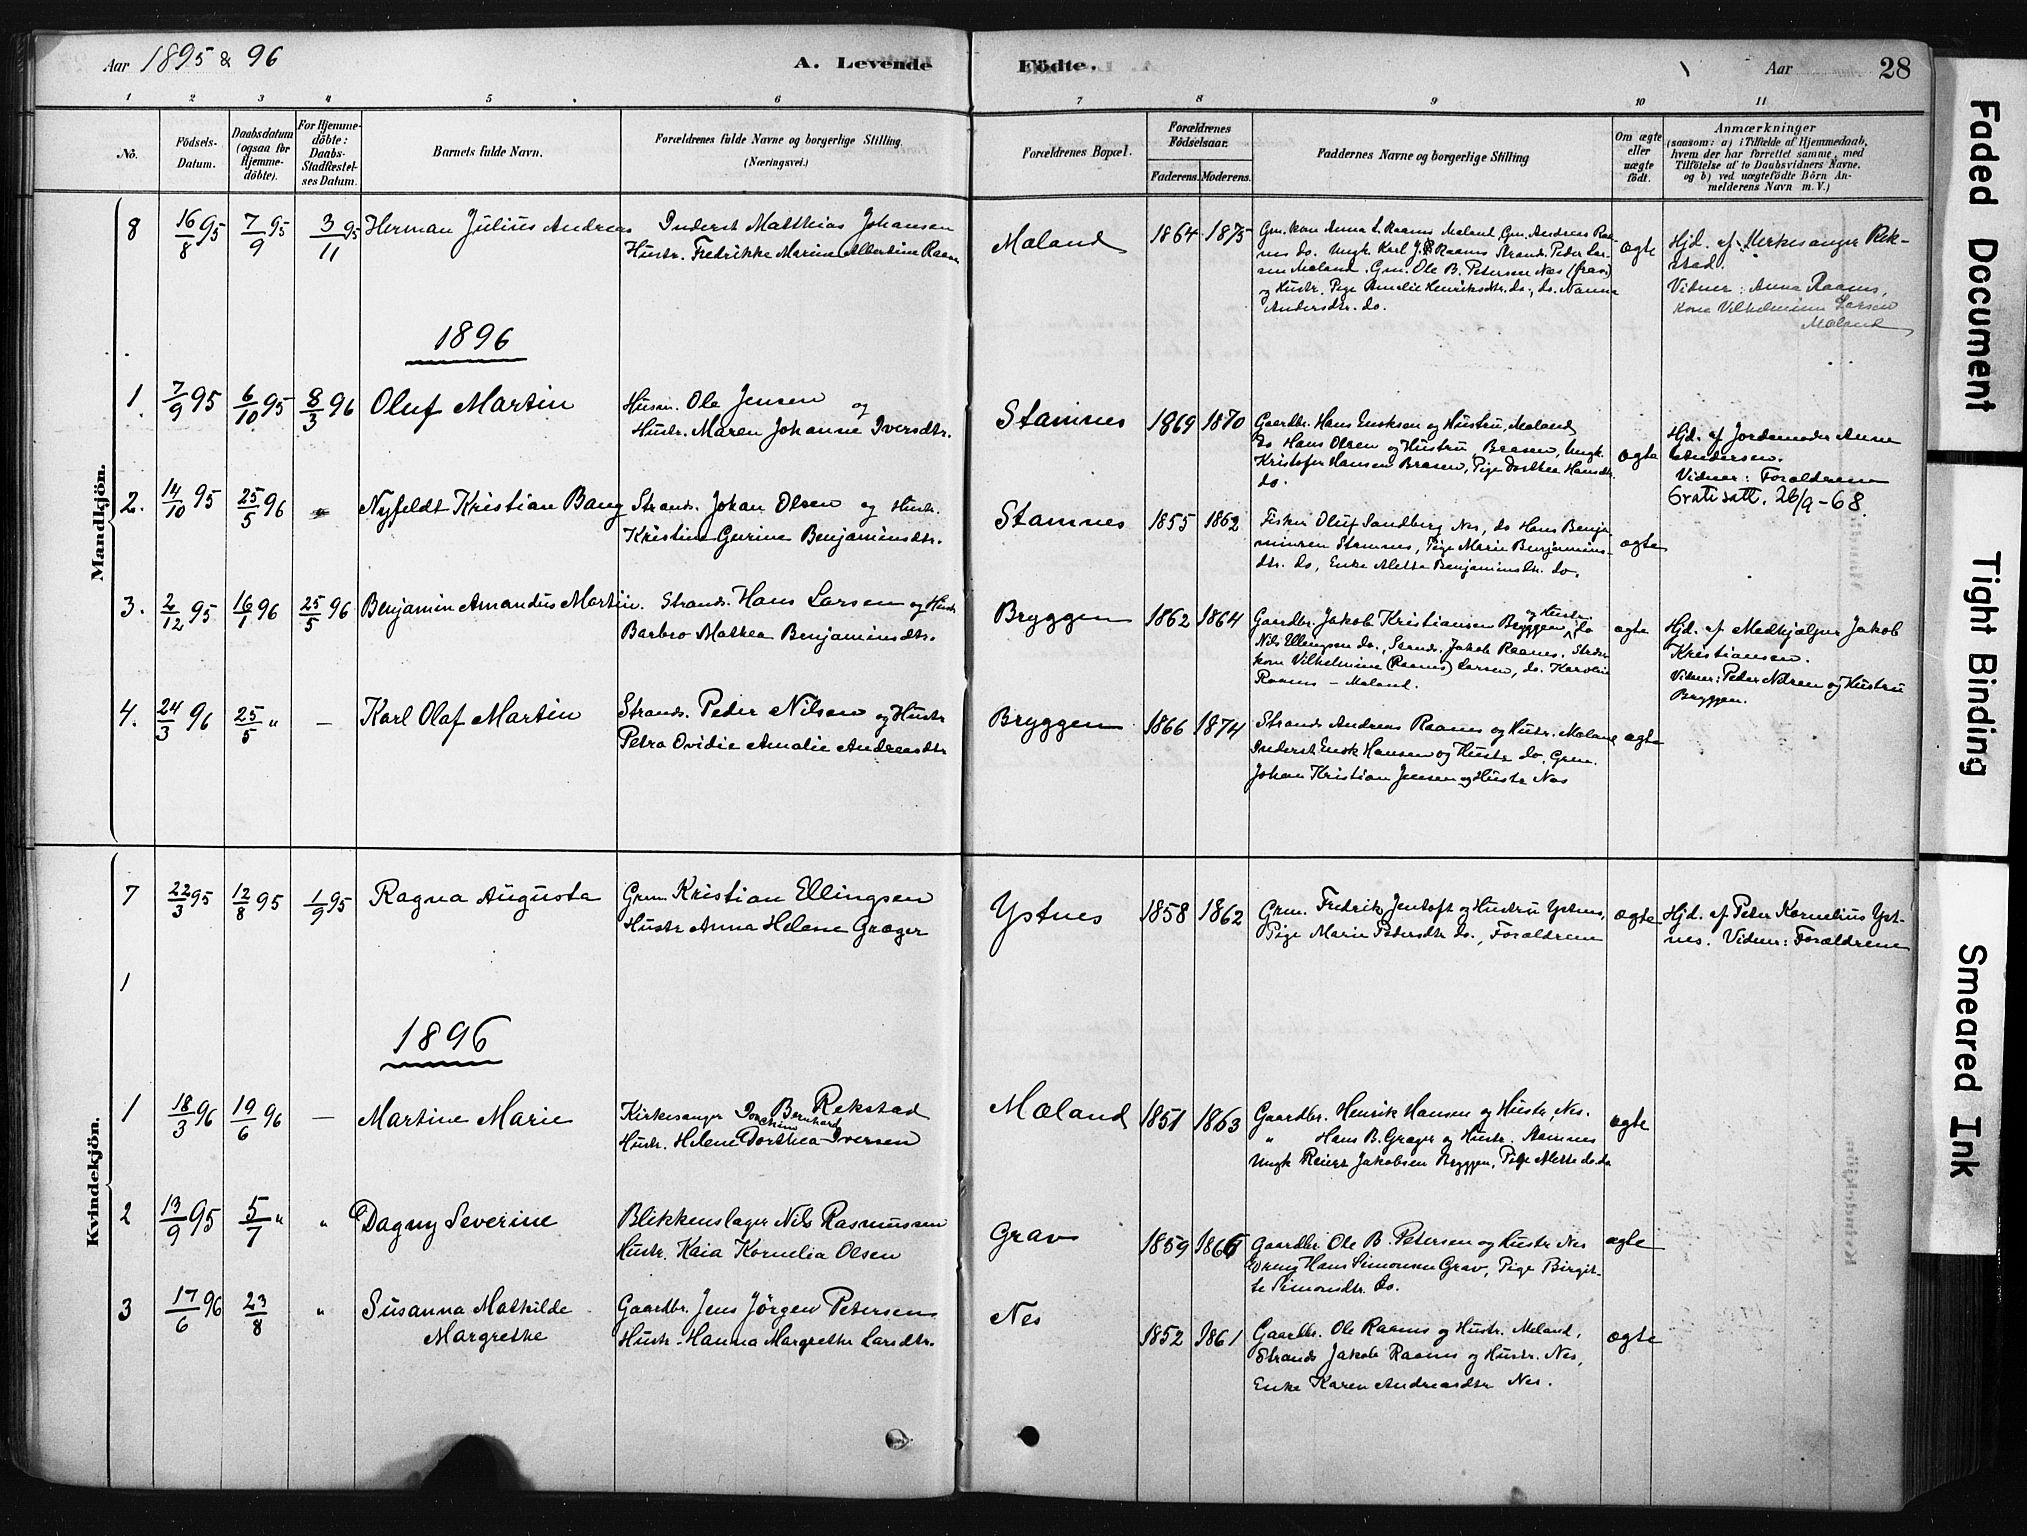 Aar 1895 & 96 A. Levende Födte. Aar 28
1 2 3 4 5 6 7 8 9 10 11
No. Födsels-Datum. Daabsdatum (ogsaa for Hjemme-döbte). For Hjemme-döbte: Daabs-Stadfæstel-ses Datum. Barnets fulde Navn. Forældrenes fulde Navne og borgerlige Stilling (Næringsvei.) Forældrenes Bopæl. Forældrenes Födselsaar. Faderens. Moderens. Faddernes Navne og borgerlige Stilling Om ægte eller uægte födt. Anmærkninger (saasom: a) i Tilfælde af Hjemmedaab, hvem der har forrettet samme, med Tilföielse af to Daabsvidners Navne. og b) ved uægtefödte Börn An-melderens Navn m. V.)
Mandkjön.
8 16/8 95 7/9 95 3/11 95 Herman Julius Andreas Inderst Matthias Johansen
Hustr. Fredrikke Marine Albertine Raam
Maland 1864 1875 Gm. kone Anna L. Raams Meland, Gm. Andreas Ra-
ms do. Ungk. Karl J. Raams Strand. Peder Lar-
sen Meland. Gm. Ole B. Petersen Nes (Grav)
og Hustr. Pige Amalie Henriksdtr. do., do. Nanna
Andersdtr. do.
ægte Hjd. af Kirkesanger Rek-
stad.
Vidner: Anna Raams,
Kone Vilhelmine Larsen
Mæland
1896
1. 7/9 95 6/10 95 8/3 96 Oluf Martin Husm. Ole Jensen og
Hustr. Maren Johanne Iversdtr.
Stamnes 1869 1870 Gaardbr. Hans Enoksen og Hustru, Mæland,
do Hans Olsen og Hustru Brasen, Ungk.
Kristofer Hansen Brasen, Pige Dorthea Hansdtr
do.
ægte Hjd. af Jordemoder Anne
Andersen.
Vidner: Forældrene
Gratisatt. 26/9-68.
2. 14/10 95 25/5 96 Nyfeldt Kristian Bang Strands. Johan Olsen og Hustr.
Kristine Gurine Benjaminsdtr.
Stamnes 1855 1862 Fisker Oluf Sandberg Nes, do Hans Benja-
minsen Stamnes, Pige Marie Benjamins-
dtr. do, Enke Mette Benjaminsdtr. do.
ægte
3. 2/12 95 16/1 96 25/5 96 Benjamin Amandus Martin. Strands. Hans Larsen og Hustr
Barbro Mathea Benjaminsdtr.
Bryggen 1862 1864 Gaardbr. Jakob Kristiansen Bryggen og Hustr, do
Nils Ellingsen do., Strands. Jakob Raams,
kone Vilhelmine (Raams) Larsen, do. Karoline
Raams - Mæland.
ægte Hjd. af Medhjælper Jakob
Kristiansen.
Vidner: Peder Nilsen og Hustru
Bryggen.
4. 24/3 96 25/5 " — Karl Olaf Martin Strands. Peder Nilsen og Hustr
Petra Ovidie Amalie Andreasdtr
Bryggen 1866 1874 Strands Andreas Raams og Hustr. Mæland
Inderst Enok Hansen og Hustr do, Grm.
Johan Kristian Jensen og Hustr Nes
ægte
Kvindekjön.
7 22/3 95 12/8 95 1/9 95 Ragna Augusta Grm. Kristian Ellingsen
Hustr Anna Helene Græger
Ystnes 1858 1862 Grm. Fredrik Jentoft og Hustru Ystnes,
Pige Marie Pedersdtr do., Forældrene
ægte Hjd. af Peter Kornelius Yst-
nes. Vidner: Forældrene
1
1896
1 18/3 96 19/6 96 — Martine Marie Kirkesanger Joachim Bernhard Rekstad
Hustr. Helene Dorthea Iversen
Mæland 1851 1863 Gaardbr. Henrik Hansen og Hustr, Nes.
" Hans B. Græger og Hustr. Stamnes
Ungk Reiert Jakobsen Bryggen, Pige Mette do. do
ægte
2 13/9 95 5/7 " " Dagny Severine Blikkenslager Nils Rasmussen
Hustr. Kaia Kornelia Olsen
Grav 1859 1866 Gaardbr. Ole B. Petersen og Hustr Nes
Hans Simonsen Grav, Pige Birgit-
te Simonsdtr do.
ægte
3 17/6 96 23/8 " Susanna Mathilde
Margrethe
Gaardbr. Jens Jörgen Petersen
Hustr. Hanna Margrethe Larsdtr.
Nes 1852 1861 Gaardbr. Ole Raams og Hustr. Meland,
Strands Jakob Raams og Hustr. Nes,
Enke Karen Andreasdtr Nes.
ægte
Faded Document
Tight Binding
Smeared Ink